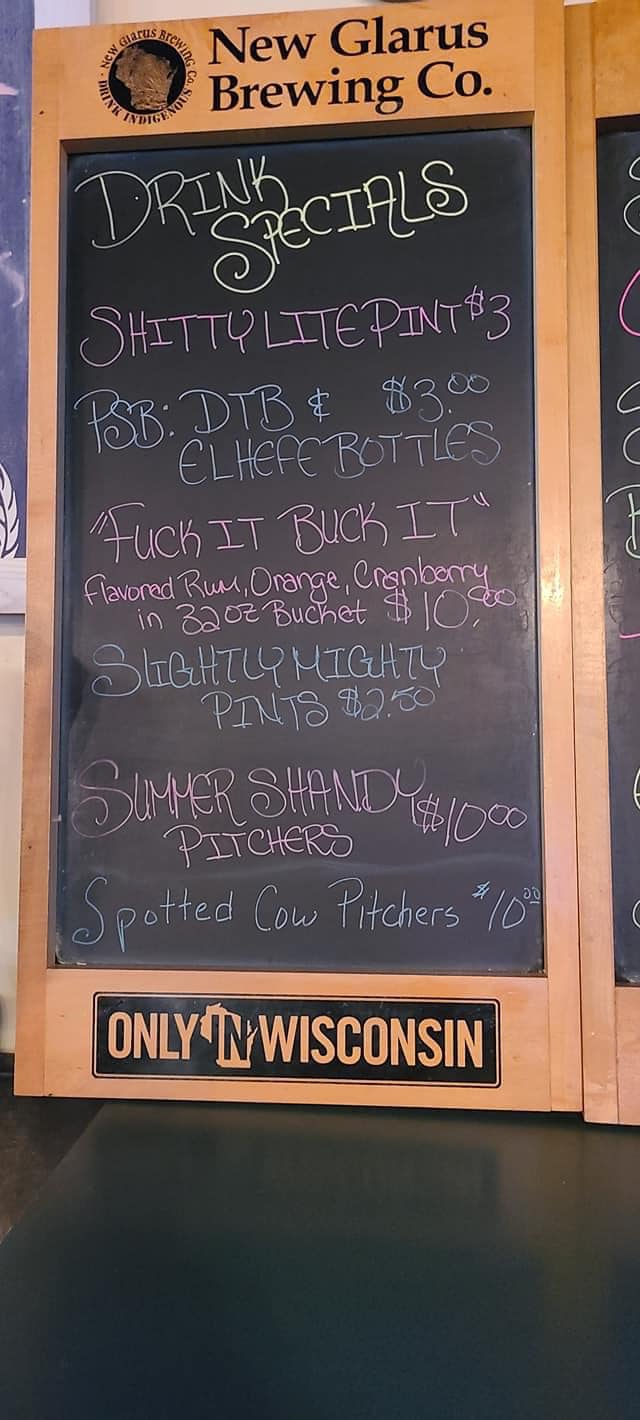 New Glarus
Brewing Co.
NEW GLARUS BREWING CO.
DRINK INDIGENOUS
DRINK
SPECIALS
SHITTY LITE PINT $3
PSB: DTB & $3.00
EL HEFE BOTTLES
"FUCK IT BUCK IT"
Flavored Rum, Orange, Cranberry
in 32oz Bucket $10.00
SLIGHTLY MIGHTY
PINTS $2.50
SUMMER SHANDY $10.00
PITCHERS
Spotted Cow Pitchers $10.00
ONLY IN WISCONSIN